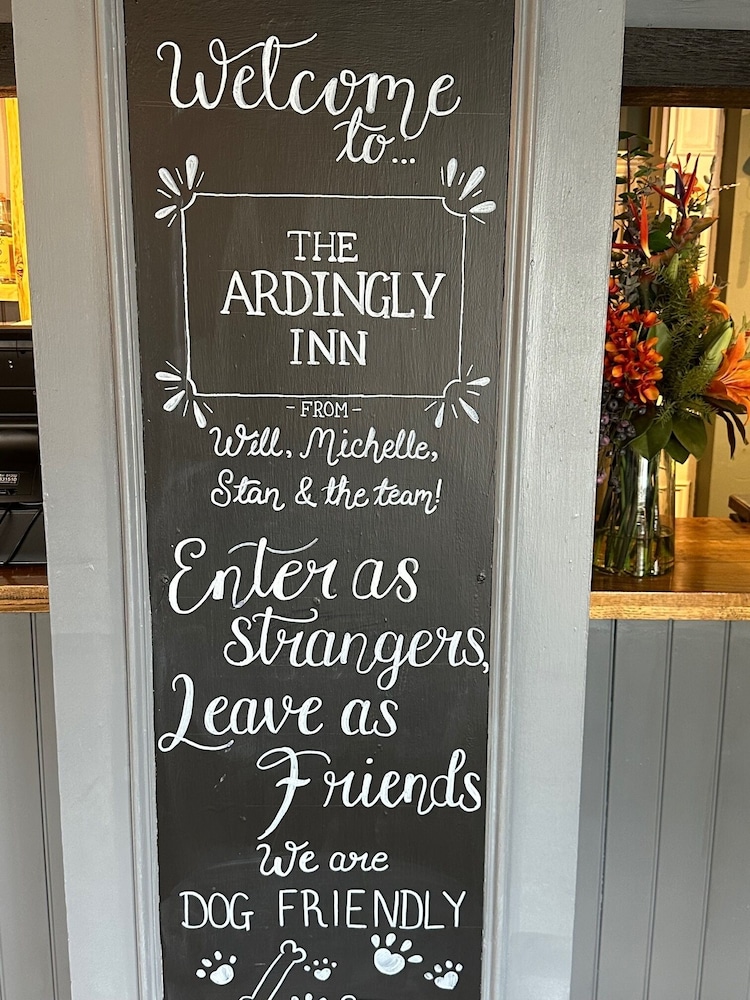 Welcome
to...
THE
ARDINGLY
INN
- FROM -
Will, Michelle,
Stan & the team!
Enter as
strangers,
Leave as
Friends
We are
DOG FRIENDLY